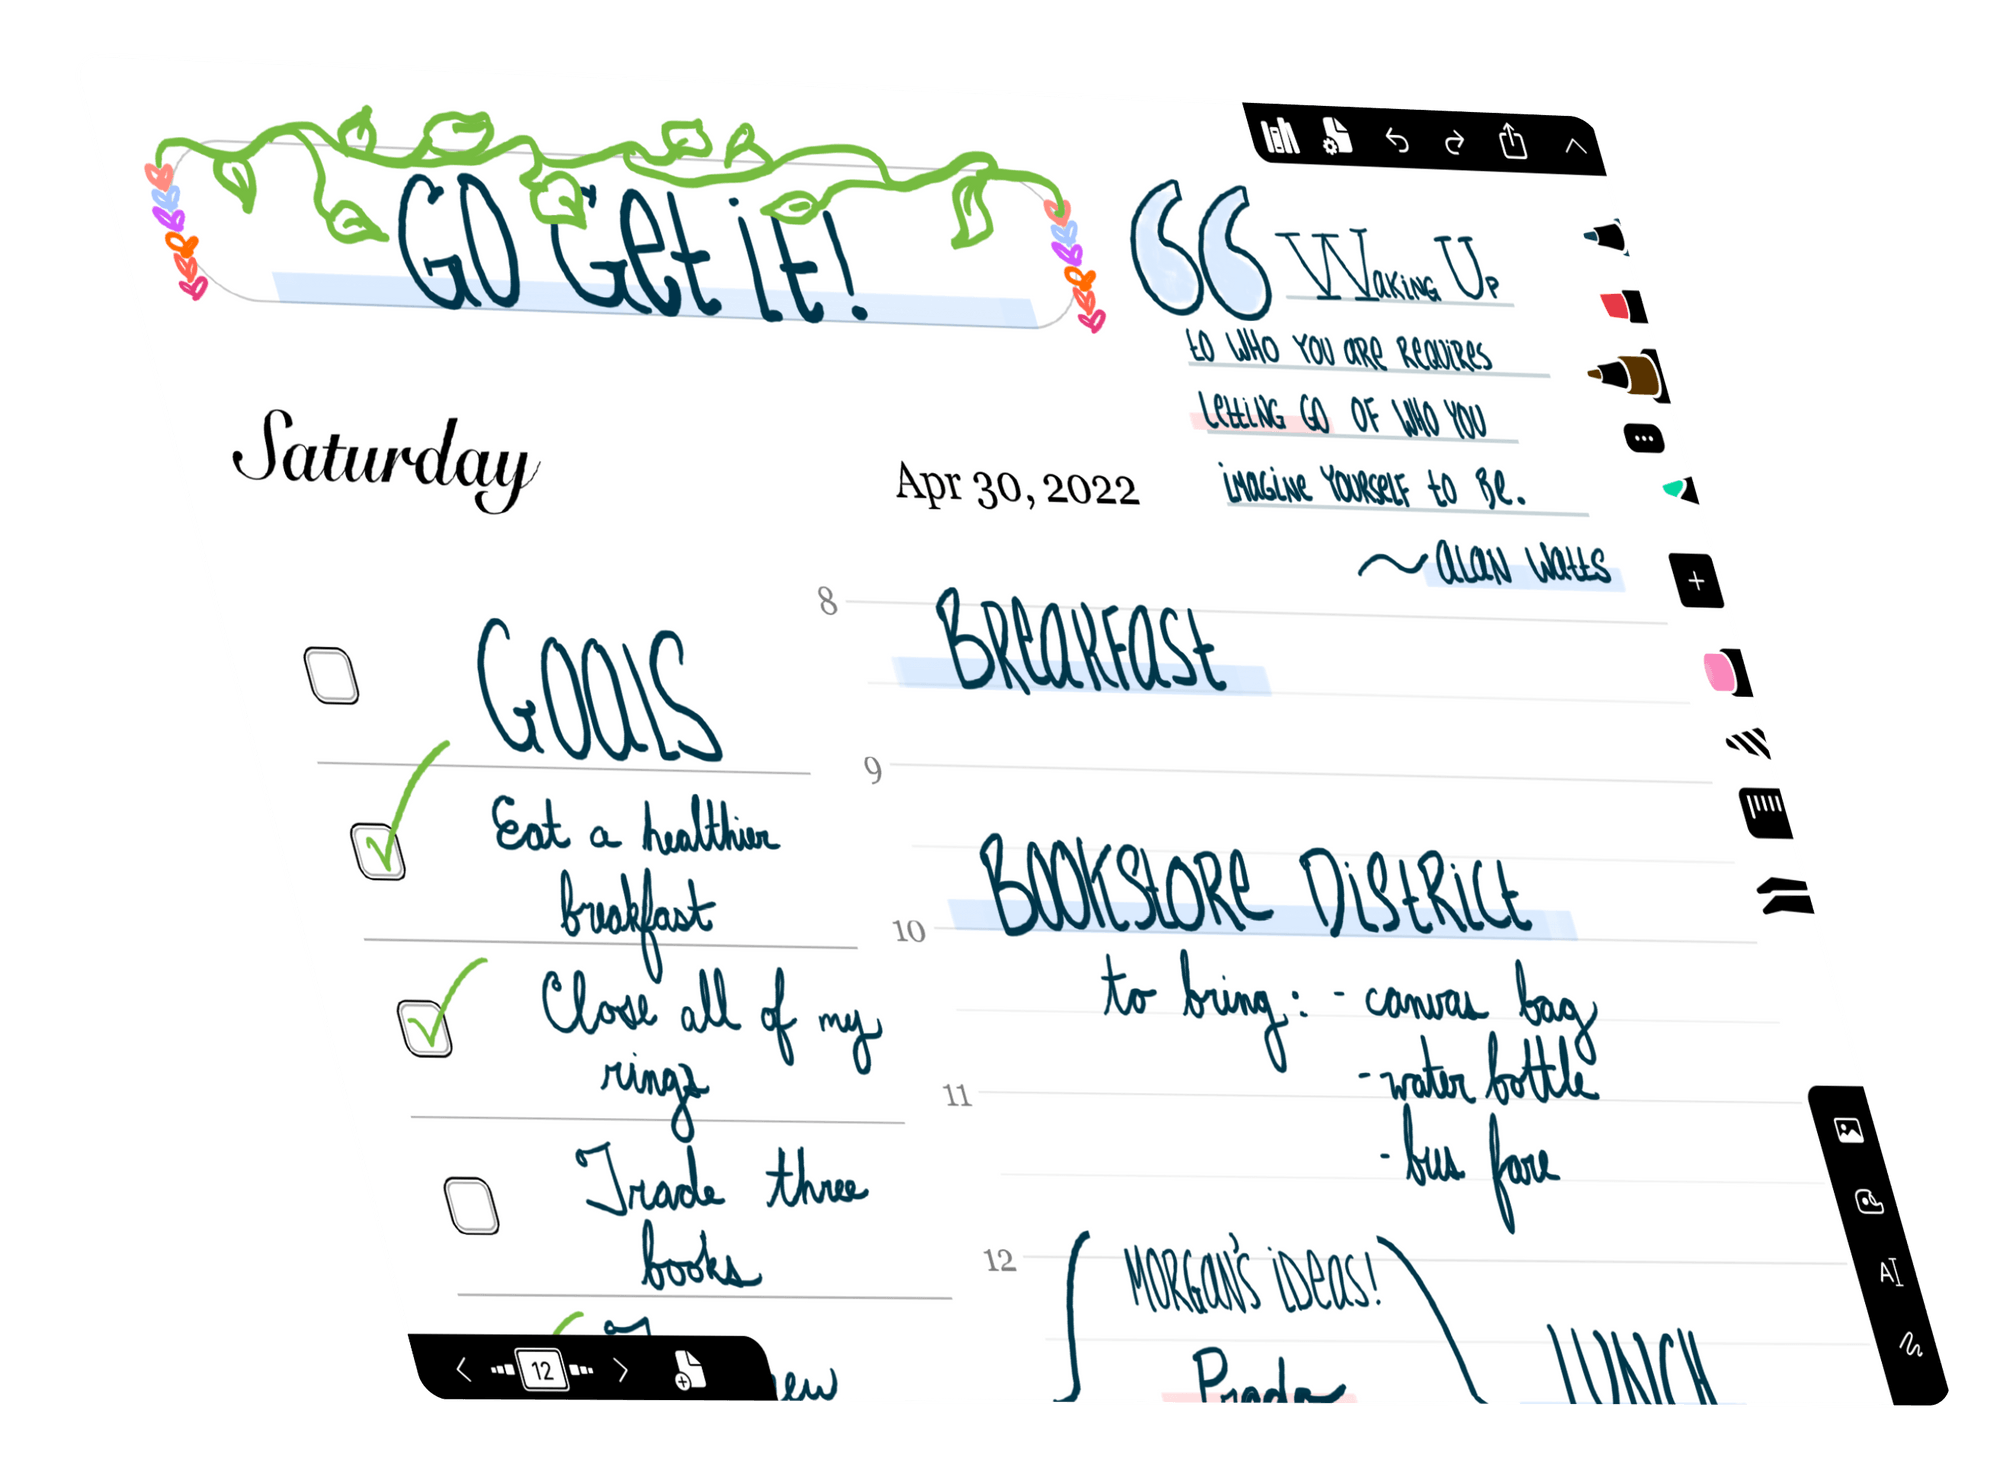 Go Get it!
Waking Up
to who you are requires
letting go of who you
imagine yourself to be.
~ Alan Watts
Saturday
Apr 30, 2022
Goals
Eat a healthier
breakfast
Close all of my
rings
Trade three
books
8
Breakfast
9
Bookstore District
10
to bring: - canvas bag
- water bottle
11
- bus fare
12
Morgan's ideas!
Prada
LUNCH
12
AI